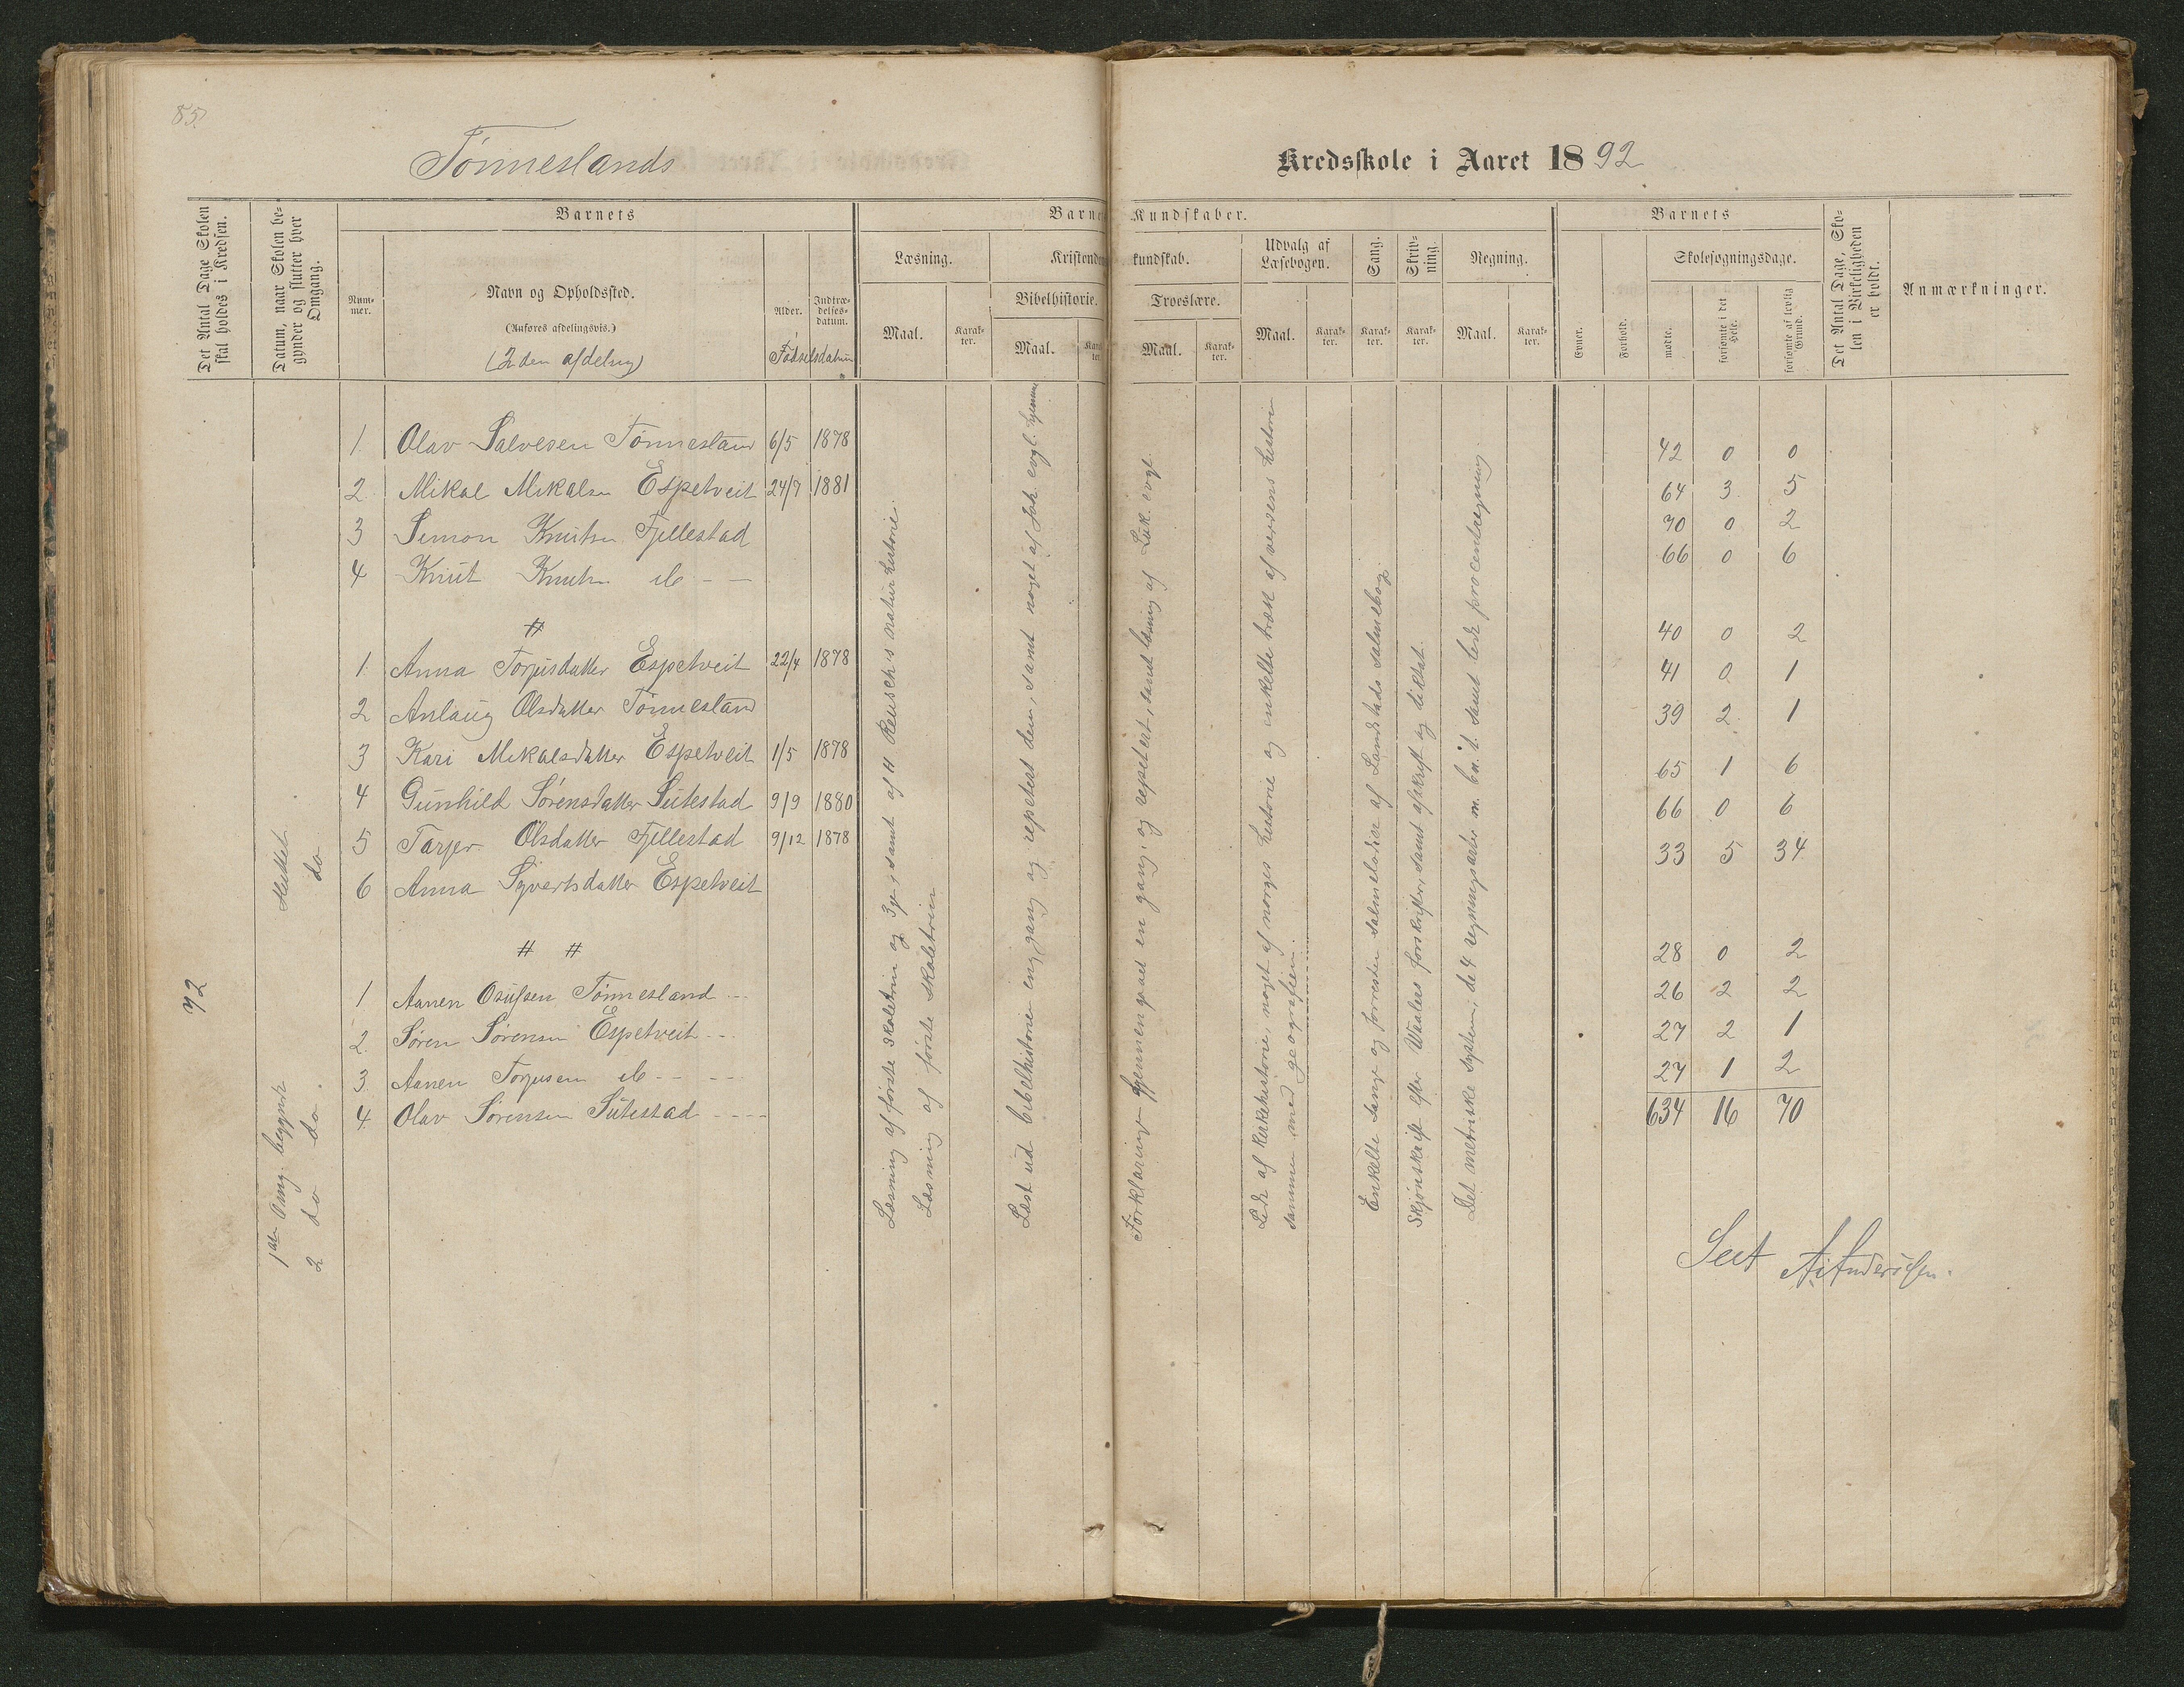 85.
Tönneslands
Kredsskole i Aaret 1892
Det Antal Dage Skolen skal holdes i Kredsen.
Datum, naar Skolen begynder og slutter hver Omgang.
Barnets
Nummer.
Navn og Opholdssted.
(Anføres afdelingsvis.)
(2den afdeling)
Alder.
Indtrædelsesdatum.
Födselsdatum
Barnets Kundskaber.
Læsning.
Maal.
Karakter.
Kristendomskundskab.
Bibelhistorie.
Maal.
Karakter.
Troeslære.
Maal.
Karakter.
Udvalg af Læsebogen.
Maal.
Karakter.
Sang.
Karakter.
Skrivning.
Karakter.
Regning.
Maal.
Karakter.
Barnets
Evner.
Forhold.
Skolesøgningsdage.
mødte.
forsømte i det Hele.
forsømte af lovlig Grund.
Det Antal Dage, Skolen i Virkeligheden er holdt.
Anmærkninger.
72
1ste Omg. begyndt Sluttet
2 do do do
1 Olav Salvesen Tönnesland 6/5 1878 42 0 0
2 Mikal Mikalsen Espetveit 24/7 1881 64 3 5
3 Simon Knutsen Fjellestad 70 0 2
4 Knut Knutsen do - - 66 0 6
#
1. Anna Torjusdatter Espetveit 22/4 1878 40 0 2
2 Anlaug Olsdatter Tönnesland 41 0 1
3 Kari Mikalsdatter Espetveit 1/5 1878 39 2 1
4 Gunhild Sörensdatter Sutestad 9/9 1880 65 1 6
5 Tarjer Olsdatter Fjellestad 9/12 1878 66 0 6
6 Anna Syvertsdatter Espetveit 33 5 34
# #
1 Aanen Osufsen Tönnesland - - 28 0 2
2. Sören Sörensen Espetveit - - 26 2 2
3. Aanen Torjusen do - - 27 2 1
4. Olav Sörensen Sutestad - - - 27 1 2
634 16 70
Læsning af förste skoletrin og 3je, samt af H Reusch's naturhistorie.
Læsning af förste skoletrin
Læst ud bibelhistorien eng gang og repetert den, samt noget af Joh. evgl. igjennem
Forklaring gjennemgaaet en gang, og repetert, samt læsning af Luk. evgl.
Lidt af kirkehistorie, noget af norges historie og enkelte træk af verdens historie
sammen med geografien.
Enkelte sange og forresten salmelodier af Landstads salmebog.
Skjönskrift efter Waalers forskrifter, samt afskrift og diktat.
Det metriske system; de 4 regningsarter m. bn. t. samt lidt procentregning
Seet A. Anderssen.